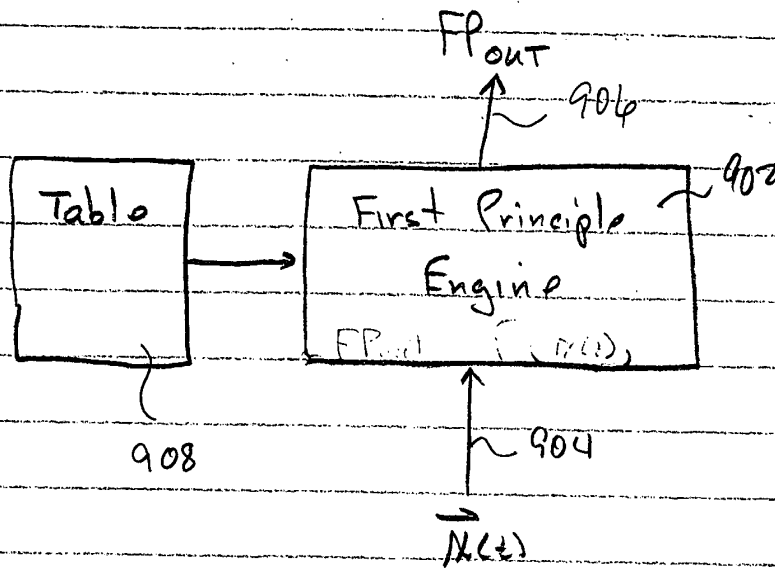 FP OUT
906
902
Table
First Principle
Engine
908
904